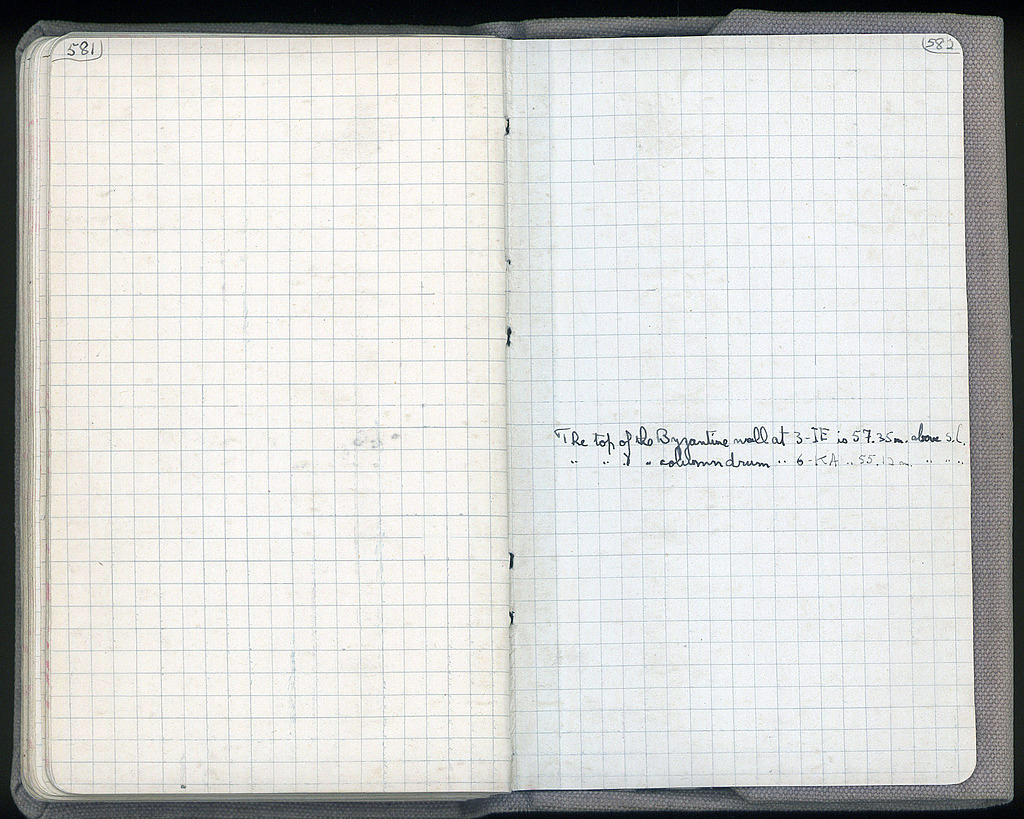 581
582
The top of the Byzantine wall at 3-IE is 57.35 m. above S.L.
" " " " column drum " 6-KA " 55.12 m. " " "